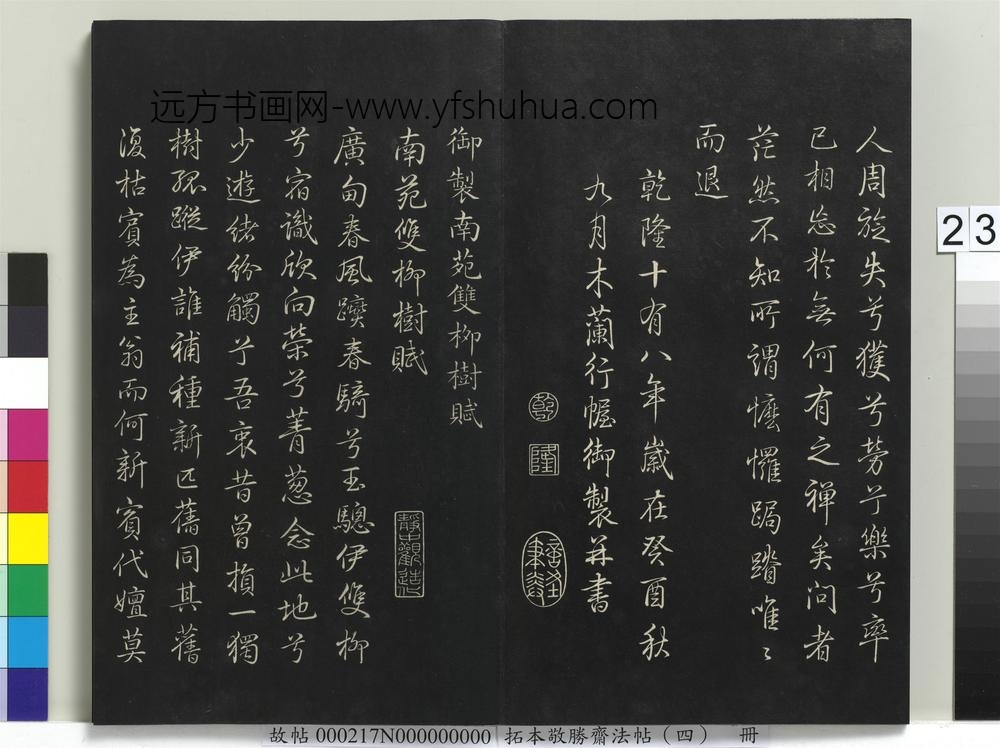 远方书画网-www.yfshuhua.com
人周旋失兮獲兮勞兮樂兮率
已相忘於無何有之禪矣問者
茫然不知所謂懡㦬跼蹐唯〻
而退
乾隆十有八年歲在癸酉秋
九月木蘭行幄御製并書
乾
隆
御製南苑雙柳樹賦
南苑雙柳樹賦
靜中觀造化
廣甸春風蹀春騎兮玉驄伊雙柳
兮宿識欣向榮兮菁蔥念此地兮
少遊緒紛觸兮吾衷昔曾損一獨
樹孤蹤伊誰補種新匹舊同其舊
復枯賓為主翁而何新賓代嬗莫
23
故帖 000217N000000000 拓本敬勝齋法帖(四) 冊